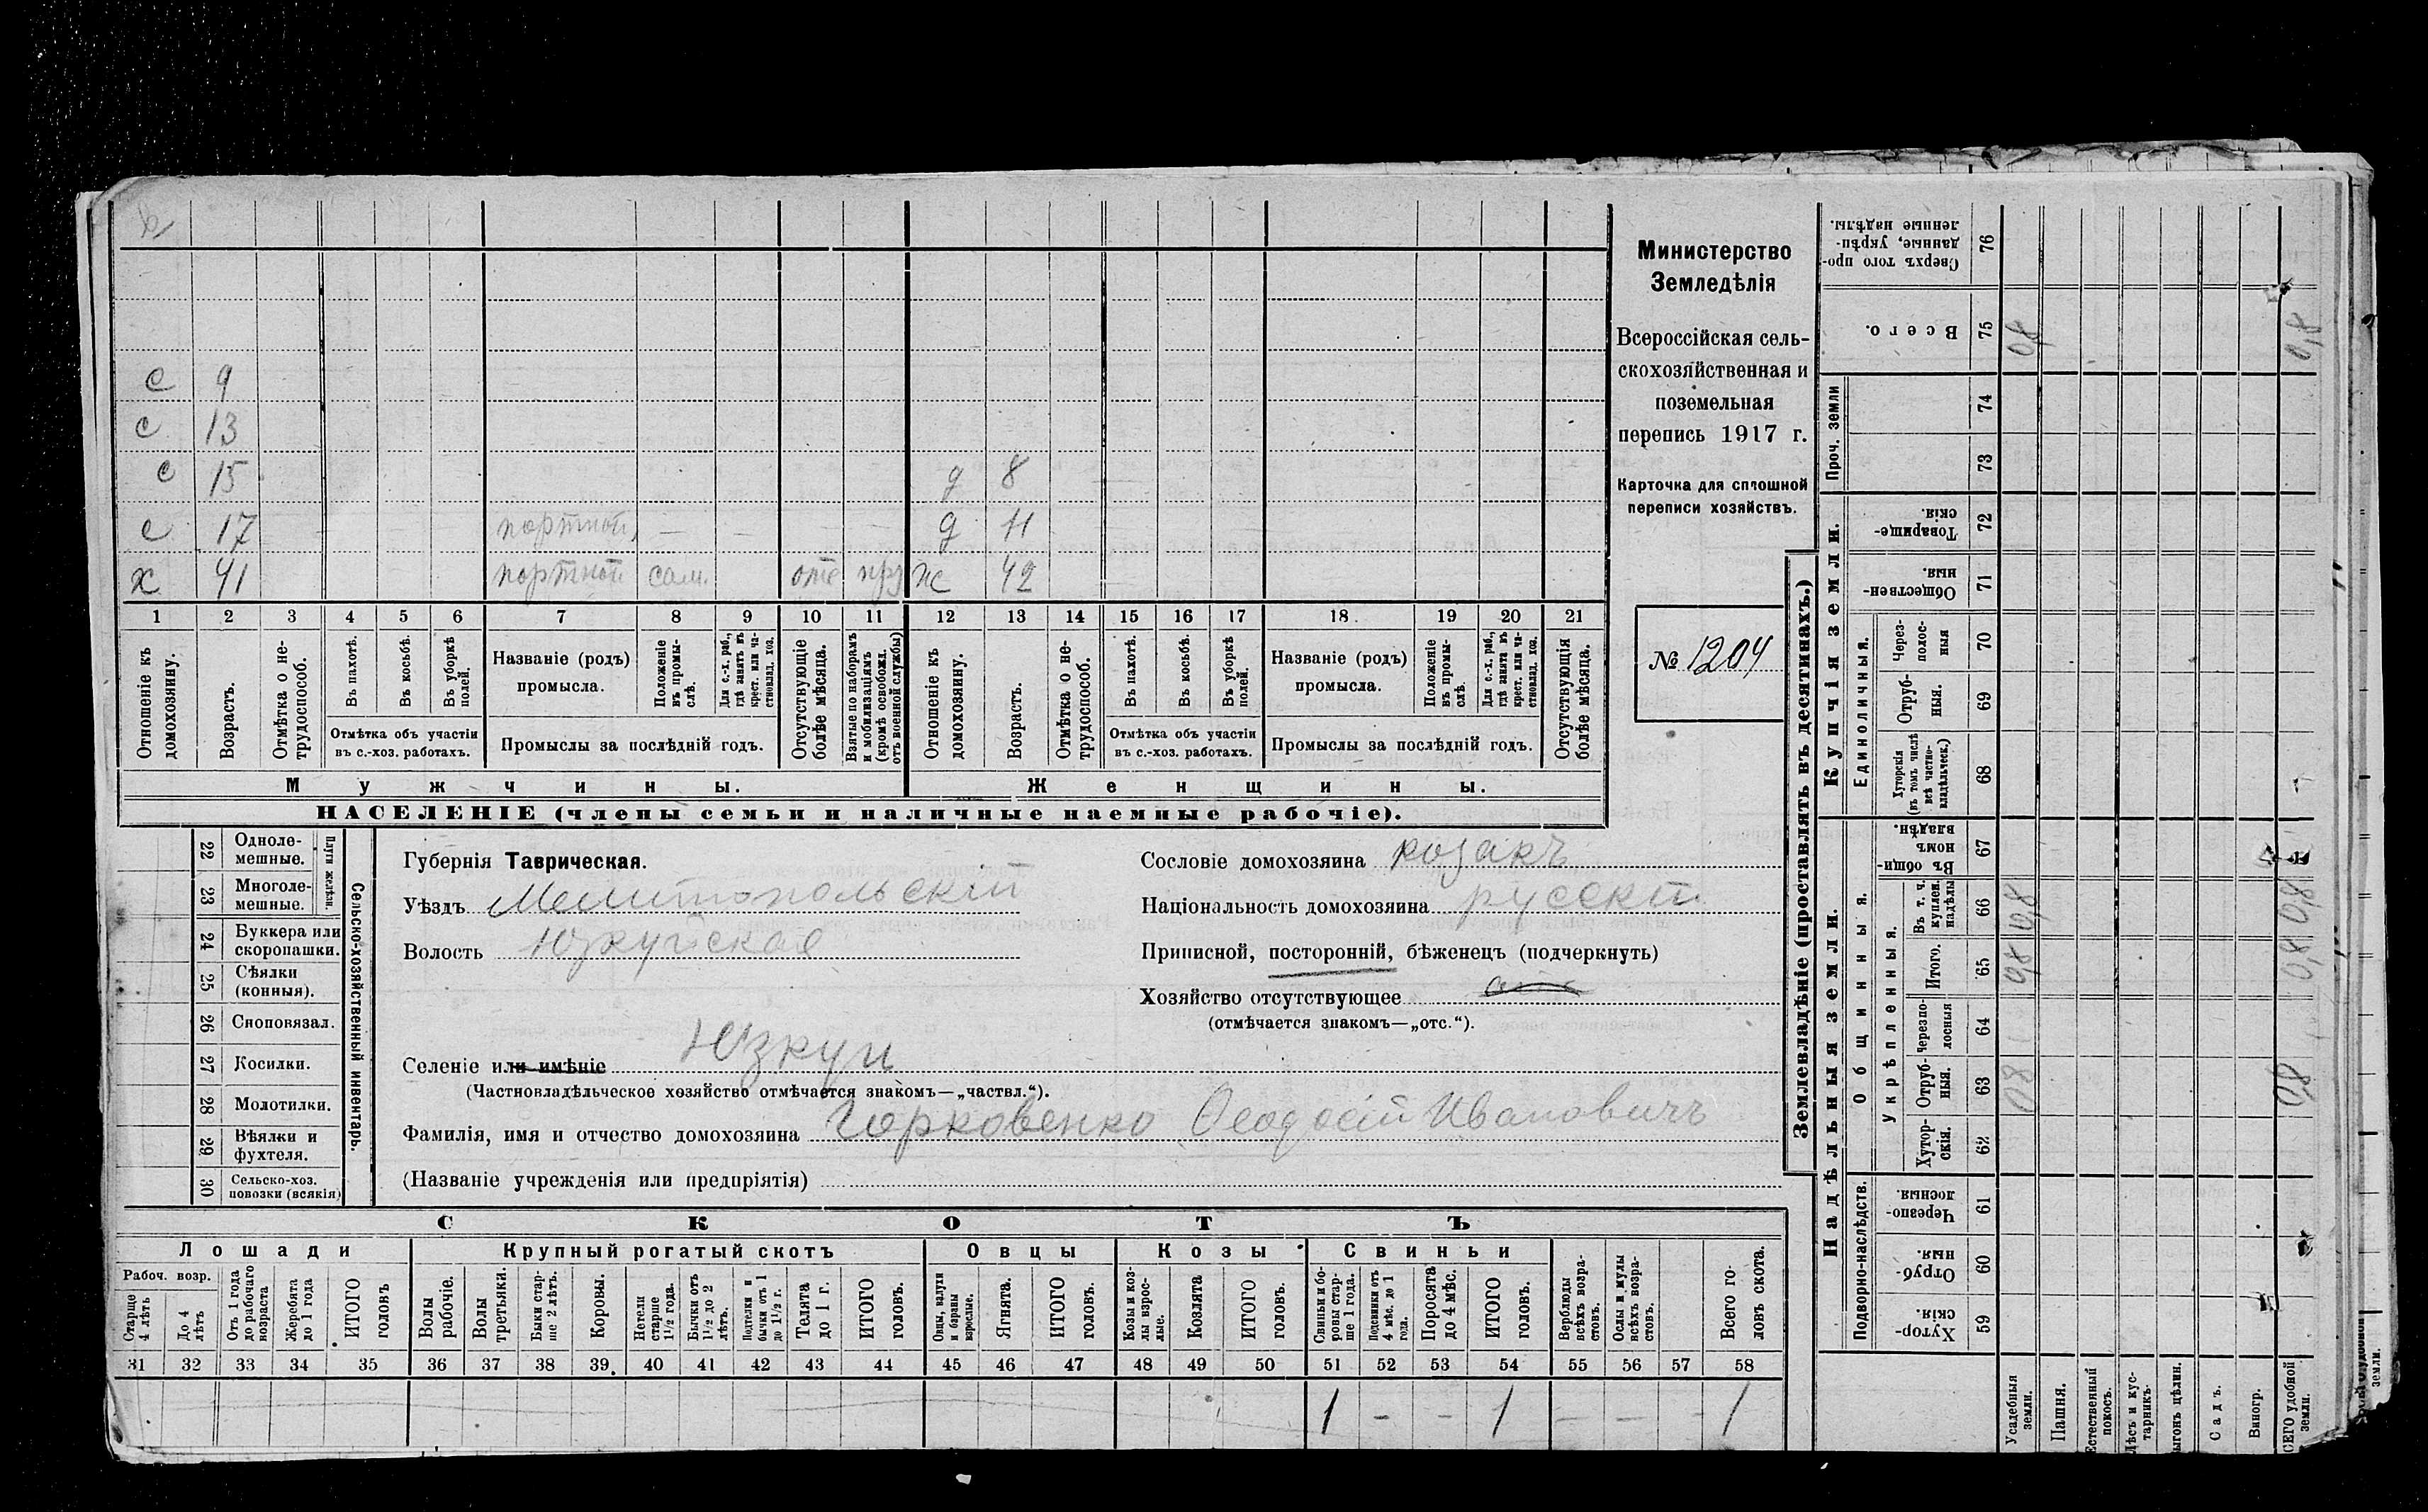 с 9
с 13
с 15 д 8
с 17 портной — — — — д 11
х 41 портной сам. отс пр ж 42
1 2 3 4 5 6 7 8 9 10 11 12 13 14 15 16 17 18 19 20 21
Отношеніе къ домохозяину.
Возрастъ.
Отмѣтка о не-трудоспособ.
Въ пахотѣ.
Въ косьбѣ.
Въ уборкѣ полей.
Отмѣтка объ участіи
въ с.-хоз. работахъ.
Названіе (родъ)
промысла.
Положеніе въ промы-слѣ.
Для с.-х. раб., гдѣ занятъ въ крест. или ча-стновлад. хоз.
Промыслы за послѣдній годъ.
Отсутствующіе болѣе мѣсяца.
Взятые по наборамъ и мобилизаціямъ (кромѣ освобожд. отъ военной службы)
Отношеніе къ домохозяину.
Возрастъ.
Отмѣтка о не-трудоспособ.
Въ пахотѣ.
Въ косьбѣ.
Въ уборкѣ полей.
Отмѣтка объ участіи
въ с.-хоз. работахъ.
Названіе (родъ)
промысла.
Положеніе въ промы-слѣ.
Для с.-х. раб., гдѣ занята въ крест. или ча-стновлад. хоз.
Промыслы за послѣдній годъ.
Отсутствующія болѣе мѣсяца.
Мужчины. Женщины.
НАСЕЛЕНІЕ (члены семьи и наличные наемные рабочіе).
Министерство
Земледѣлія
Всероссійская сель-
скохозяйственная и
поземельная
перепись 1917 г.
Карточка для сплошной
переписи хозяйствъ.
№ 1204
22 Одноле-мешные.
23 Многоле-мешные.
Плуги желѣзн.
24 Буккера или скоропашки.
25 Сѣялки (конныя).
26 Сноповязал.
27 Косилки.
28 Молотилки.
29 Вѣялки и фухтеля.
30 Сельско-хоз. повозки (всякія)
Сельско-хозяйственный инвентарь.
Губернія Таврическая.
Уѣздъ Мелитопольскій
Волость Юзкуйская
Селеніе или имѣніе Юзкуи
(Частновладѣльческое хозяйство отмѣчается знакомъ—„частвл.“).
Фамилія, имя и отчество домохозяина Горковенко Ѳеодосій Ивановичъ
(Названіе учрежденія или предпріятія)
Сословіе домохозяина козакъ
Національность домохозяина русскій
Приписной, посторонній, бѣженецъ (подчеркнуть)
Хозяйство отсутствующее
(отмѣчается знакомъ—„отс.“).
СКОТЪ
Лошади Крупный рогатый скотъ Овцы Козы Свиньи
Рабоч. возр.
Старше 4 лѣтъ
До 4 лѣтъ
Отъ 1 года до рабочаго возраста
Жеребята до 1 года
ИТОГО головъ
Волы рабочіе.
Волы третьяки.
Быки стар-ше 2 лѣтъ.
Коровы.
Нетели старше 1½ года.
Бычки отъ 1½ до 2 лѣтъ.
Подтелки и бычки отъ 1 до 1½ г.
Телята до 1 г.
ИТОГО головъ.
Овцы, валухи и бараны взрослые.
Ягнята.
ИТОГО головъ.
Козы и коз-лы взрос-лые.
Козлята
ИТОГО головъ.
Свиньи и бо-ровы стар-ше 1 года.
Подсвинки отъ 4 мѣс. до 1 года.
Поросята до 4 мѣс.
ИТОГО головъ.
Верблюды всѣхъ возра-стовъ.
Ослы и мулы всѣхъ возра-стовъ.
Всего го-ловъ скота.
31 32 33 34 35 36 37 38 39 40 41 42 43 44 45 46 47 48 49 50 51 52 53 54 55 56 57 58
1 – – 1 – – – 1
Землевладѣніе (проставлять въ десятинахъ.)
Купчія земли.
Надѣльныя земли.
Сверхъ того про-данные, укрѣп-ленные надѣлы. 76
Всего. 75 0,8 0,8
Проч. земли 74
73
Товарище-скія. 72
Обществен-ныя. 71
Единоличныя.
Через-полос-ныя 70
Отруб-ныя. 69
Хуторскія (въ томъ числѣ всѣ частно-владѣльческ.) 68
Общинныя.
Въ общин-номъ владѣн. 67
Укрѣпленныя.
Въ т. ч. куплен. надѣлы 66 0,8 0,8
Итого. 65 0,8 0,8
Черезпо-лосныя 64
Отруб-ныя. 63 0,8 0,8
Хутор-скія. 62
Подворно-наслѣдств.
Черезпо-лосныя. 61
Отруб-ныя. 60
Хутор-скія. 59
Усадебныя земли.
Пашня.
Естественный покосъ.
Лѣсъ и кус-тарникъ.
Садъ.
Виногр.
удобной земли.
земли.